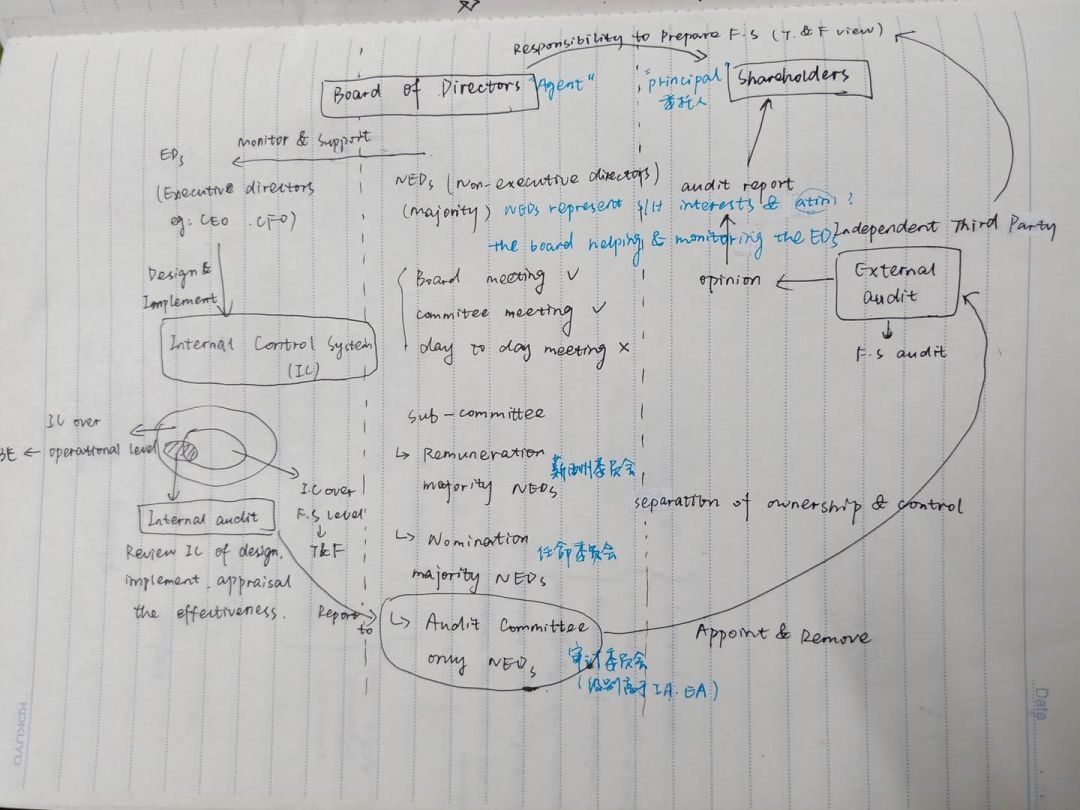 Responsibility to Prepare F.S (T.&F view)
Board of Directors "Agent"
"principal" Shareholders
委托人
monitor & Support
EDs
(Executive directors
eg: CEO .CFO)
NEDs (Non-executive directors)
(majority) NEDs represent S/H interests &
the board helping & monitoring the EDs
audit report
Independent Third Party
Design &
Implement
Board meeting ✓
commitee meeting ✓
day to day meeting ×
opinion
External
audit
F.S audit
Internal Control System
(IC)
IC over
operational level
3E
IC over
F.S level
T&F
Internal audit
Review IC of design,
implement, appraisal
the effectiveness.
Report
to
Sub-committee
↳ Remuneration 薪酬委员会
majority NEDs
↳ Nomination 任命委员会
majority NEDs
↳ Audit Committee
only NEDs 审计委员会
(级别高于IA.EA)
separation of ownership & control
Appoint & Remove
Date
KOKUYO